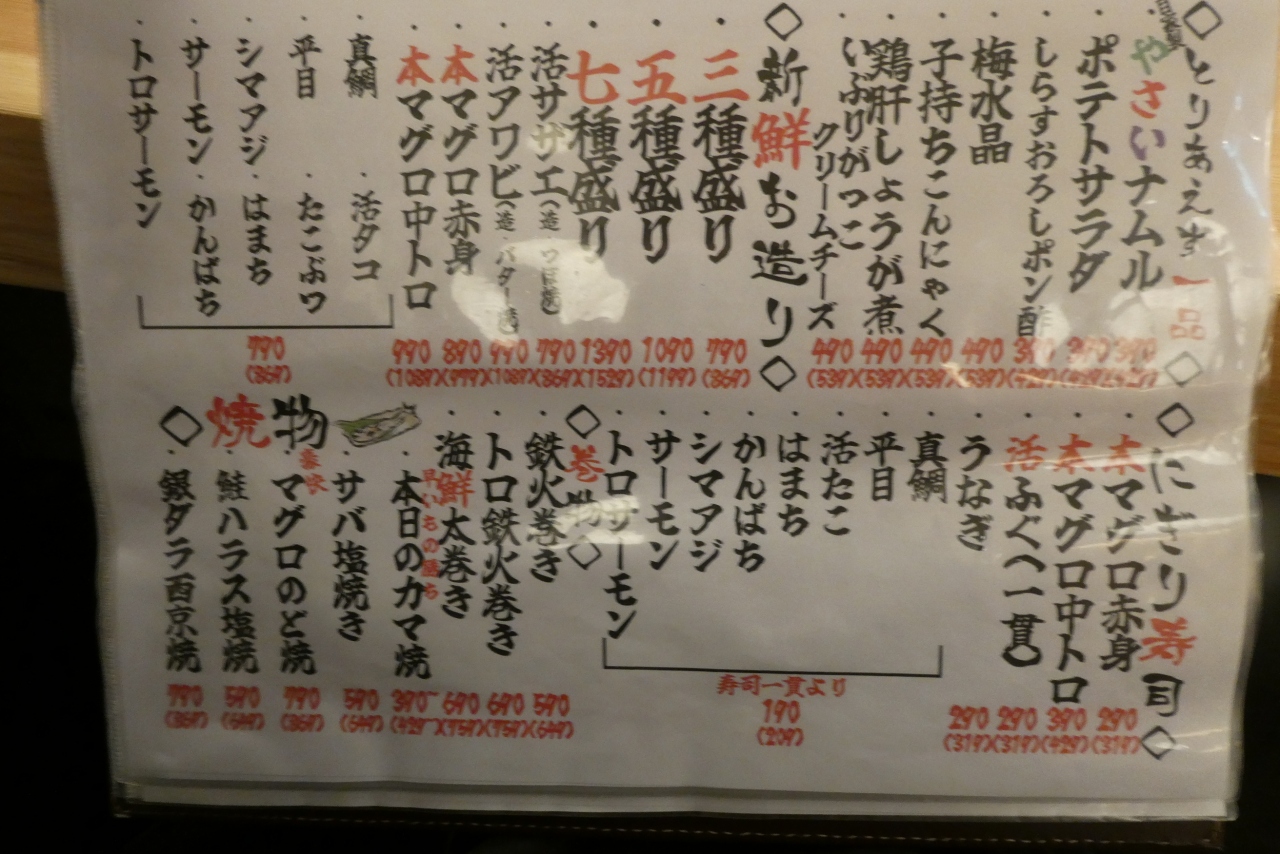 ◇とりあえず一品◇
・やさいナムル
390
・ポテトサラダ
390
・しらすおろしポン酢
390
・梅水晶
490
(539)
・子持ちこんにゃく
490
(539)
・鶏肝しょうが煮
490
(539)
・いぶりがっこ
クリームチーズ
490
(539)
◇新鮮お造り◇
・三種盛り
790
(869)
・五種盛り
1090
(1199)
・七種盛り
1390
(1529)
・活サザエ(造・つぼ焼)
790
(869)
・活アワビ(造・バター焼)
990
(1089)
・本マグロ赤身
890
(979)
・本マグロ中トロ
990
(1089)
・真鯛
・活タコ
・平目
・たこぶつ
・シマアジ
・はまち
・サーモン
・かんぱち
・トロサーモン
790
(869)
◇にぎり寿司◇
・本マグロ赤身
290
(319)
・本マグロ中トロ
390
(429)
・活ふぐ(一貫)
290
(319)
・うなぎ
290
(319)
・真鯛
・平目
・活たこ
・はまち
・かんぱち
・シマアジ
・サーモン
・トロサーモン
寿司一貫より
190
(209)
◇巻物◇
・鉄火巻き
590
(649)
・トロ鉄火巻き
690
(759)
・海鮮太巻き
690
(759)
◇焼物
早いもの勝ち
・本日のカマ焼
390~
(429~)
・サバ塩焼き
590
(649)
豪快
・マグロのど焼
790
(869)
・鮭ハラス塩焼
590
(649)
・銀ダラ西京焼
790
(869)